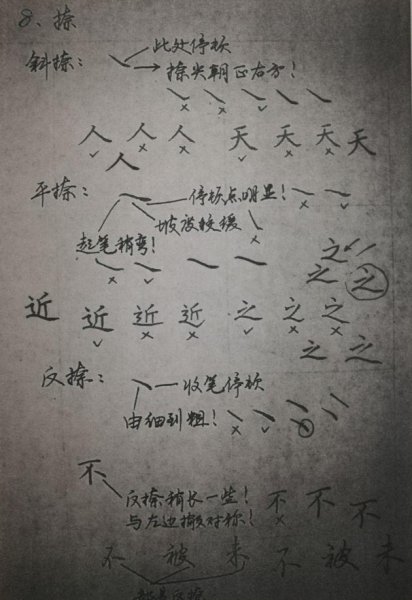 8、捺
斜捺：
此处停顿
捺尖朝正右方！
人 人 人 天 天 天 天
人
平捺：
停顿点明显！
坡度较缓
起笔稍弯！
之
之 之
近 近 近 近 之 之 之
之 之
反捺：
收笔停顿
由细到粗！
不
反捺稍长一些！
与左边撇对称！
不 不 不
不 被 未 不 被 未